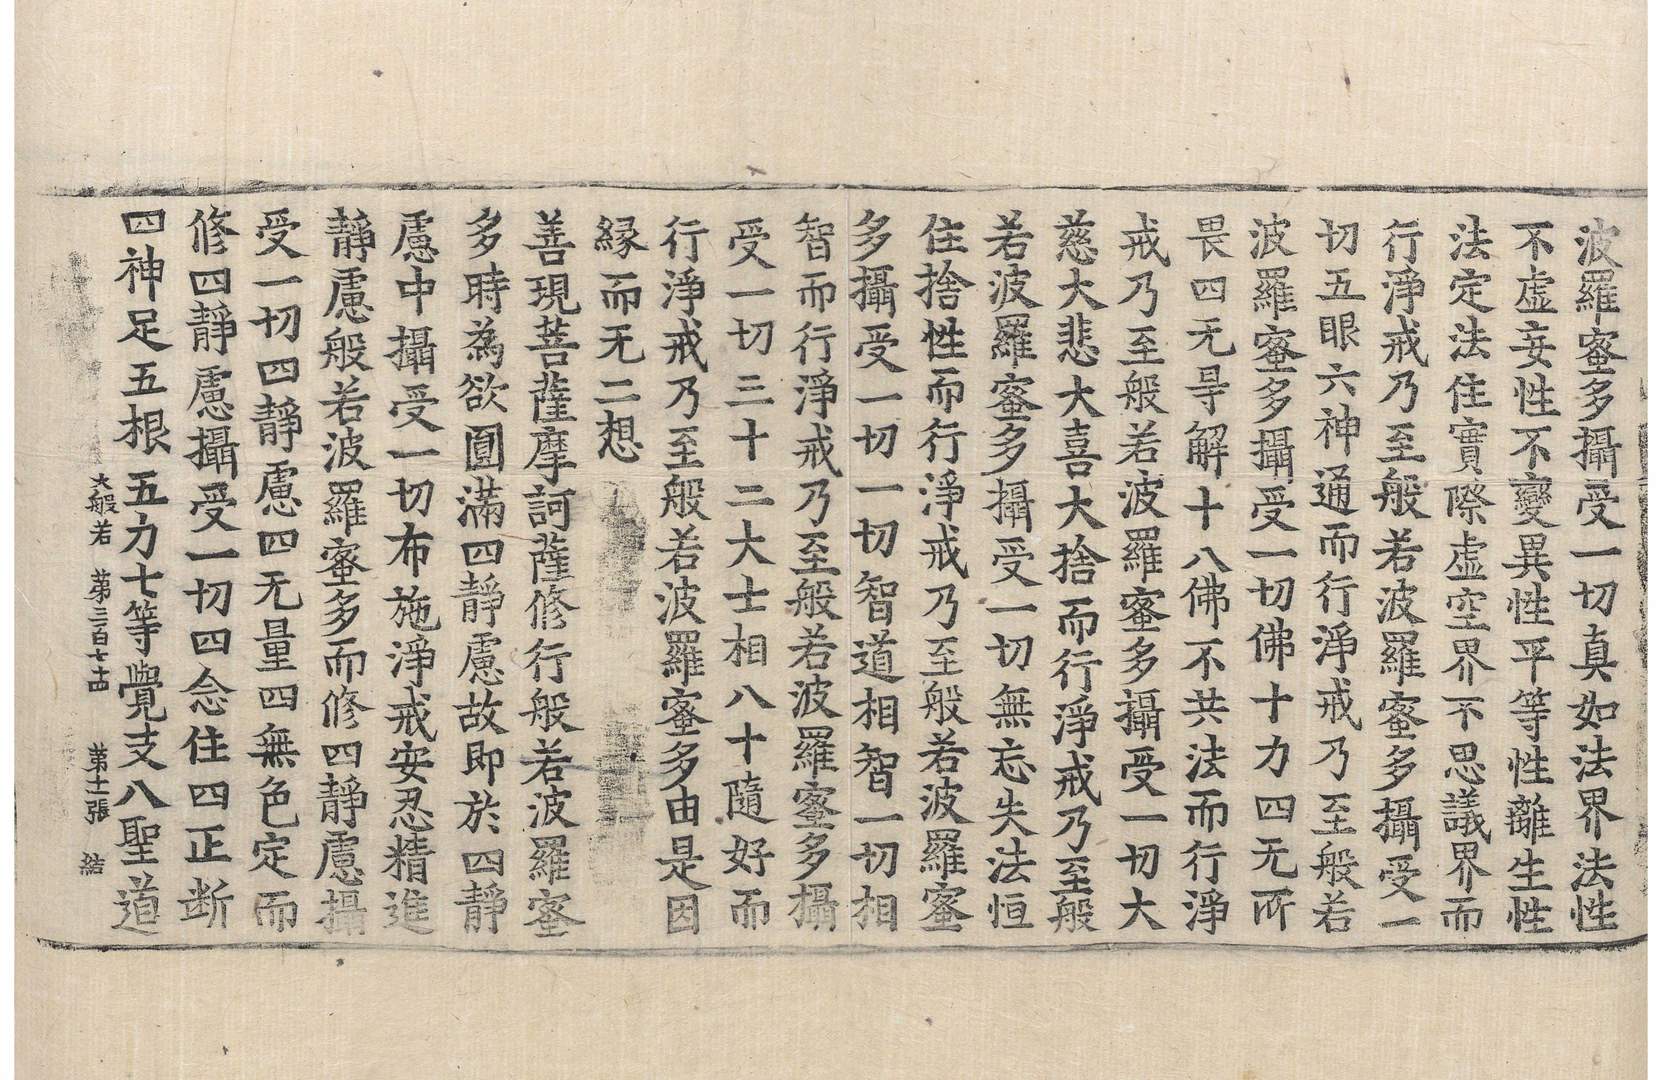 波羅蜜多攝受一切真如法界法性
不虛妄性不變異性平等性離生性
法定法住實際虛空界不思議界而
行淨戒乃至般若波羅蜜多攝受一
切五眼六神通而行淨戒乃至般若
波羅蜜多攝受一切佛十力四无所
畏四无㝵解十八佛不共法而行淨
戒乃至般若波羅蜜多攝受一切大
慈大悲大喜大捨而行淨戒乃至般
若波羅蜜多攝受一切無忘失法恒
住捨性而行淨戒乃至般若波羅蜜
多攝受一切一切智道相智一切相
智而行淨戒乃至般若波羅蜜多攝
受一切三十二大士相八十隨好而
行淨戒乃至般若波羅蜜多由是因
緣而无二想
善現菩薩摩訶薩修行般若波羅蜜
多時為欲圓滿四靜慮故即於四靜
慮中攝受一切布施淨戒安忍精進
靜慮般若波羅蜜多而修四靜慮攝
受一切四靜慮四无量四無色定而
修四靜慮攝受一切四念住四正断
四神足五根五力七等覺支八聖道
大般若 第三百七十四 第十一張 結